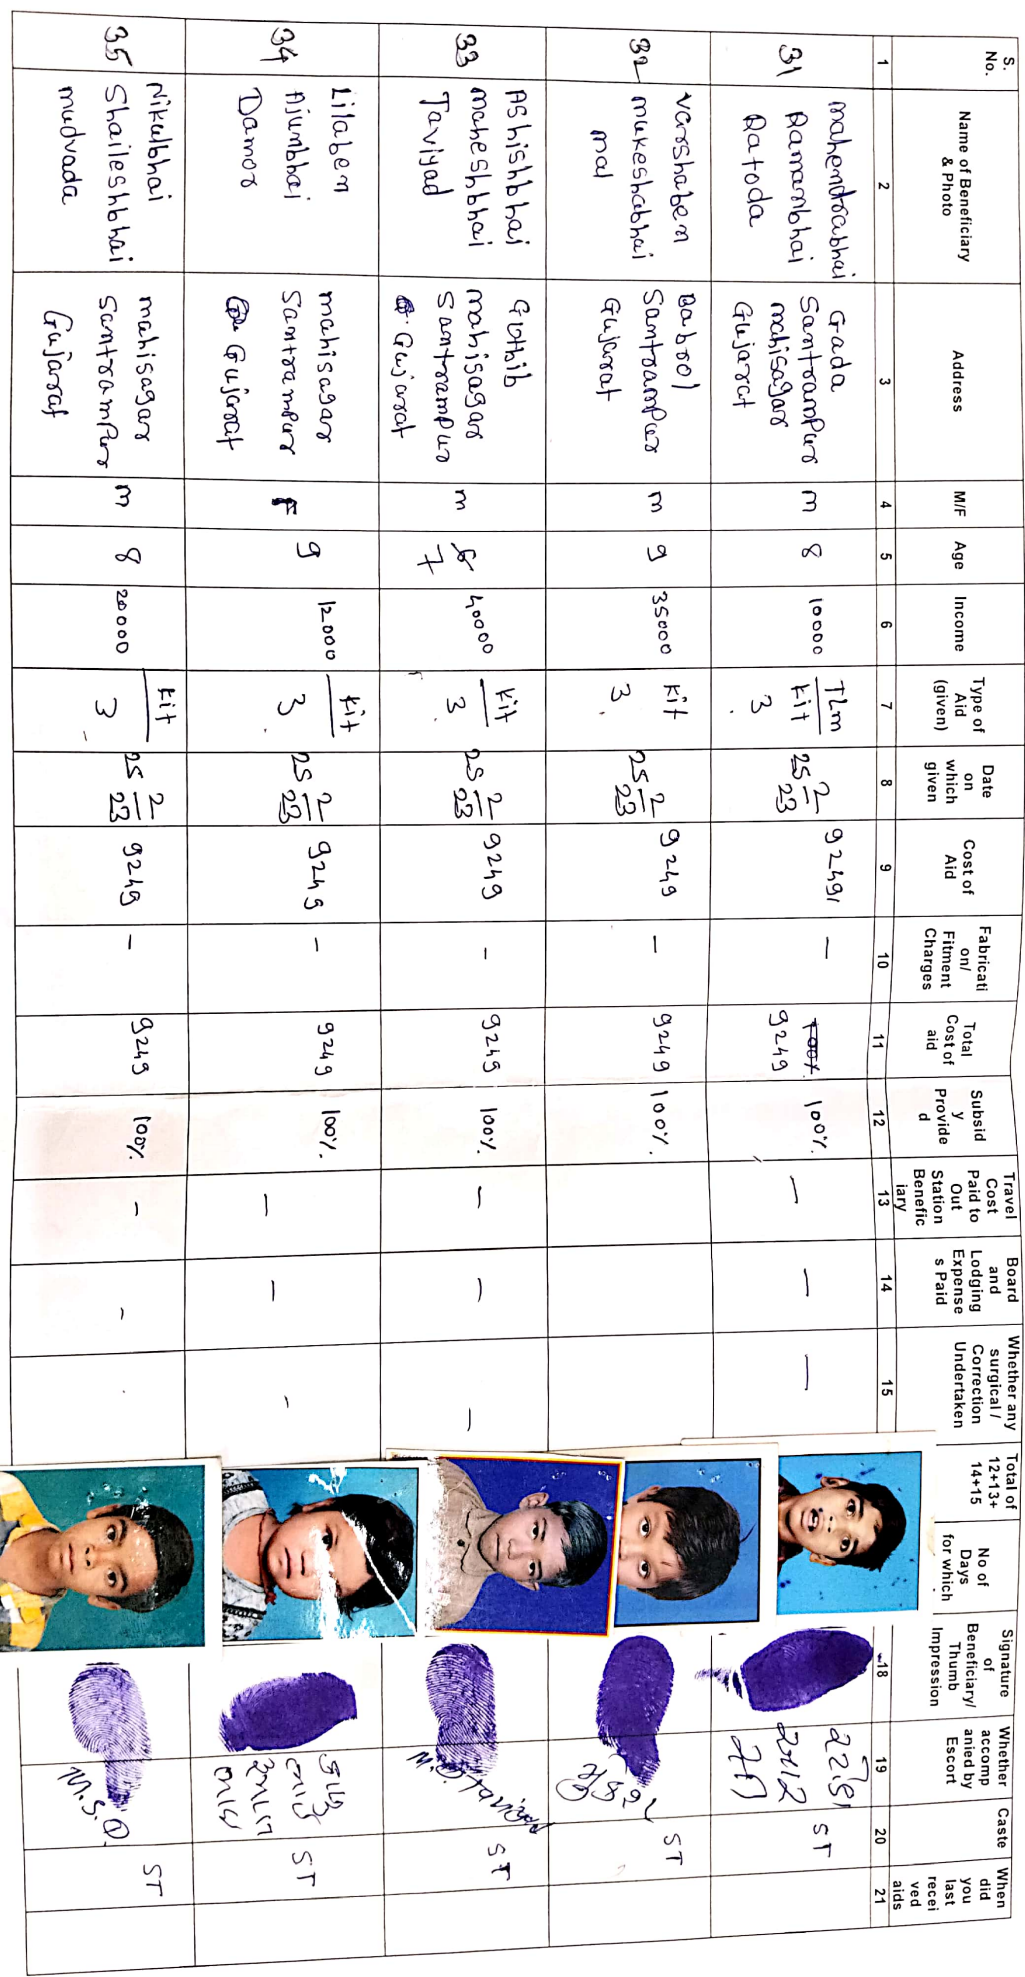 S. No.
Name of Beneficiary & Photo
Address
M/F
Age
Income
Type of Aid (given)
Date on which given
Cost of Aid
Fabricati on/ Fitment Charges
Total Cost of aid
Subsid y Provide d
Travel Cost Paid to Out Station Benefic iary
Board and Lodging Expense s Paid
Whether any surgical / Correction Undertaken
Total of 12+13+ 14+15
No of Days for which
Signature of Beneficiary/ Thumb Impression
Whether accomp anied by Escort
Caste
When did you last recei ved aids
1 2 3 4 5 6 7 8 9 10 11 12 13 14 15 18 19 20 21
31
mahendrabhai
Ramanbhai
Ratoda
Gada
Santrampur
mahisagar
Gujarat
m
8
10000
TLm
Kit
3
25 2/23
9249
-
9249
100%
-
-
-
ST
32
varshaben
mukeshabhai
mal
Babrol
Santrampur
Gujarat
m
9
35000
Kit
3
25 2/23
9249
-
9249
100%
ST
33
Ashishbhai
maheshbhai
Taviyad
Gothib
mahisagar
Santrampur
Gujarat
m
7
40000
Kit
3
25 2/23
9249
-
9249
100%
-
-
-
ST
34
Lilaben
Ajunbhai
Damor
mahisagar
Santrampur
Gujarat
F
9
12000
Kit
3
25 2/23
9249
-
9249
100%
-
-
-
ST
35
Nikulbhai
Shaileshbhai
mudvada
mahisagar
Santrampur
Gujarat
m
8
20000
Kit
3
25 2/23
9249
-
9249
100%
-
-
M.S.D.
ST